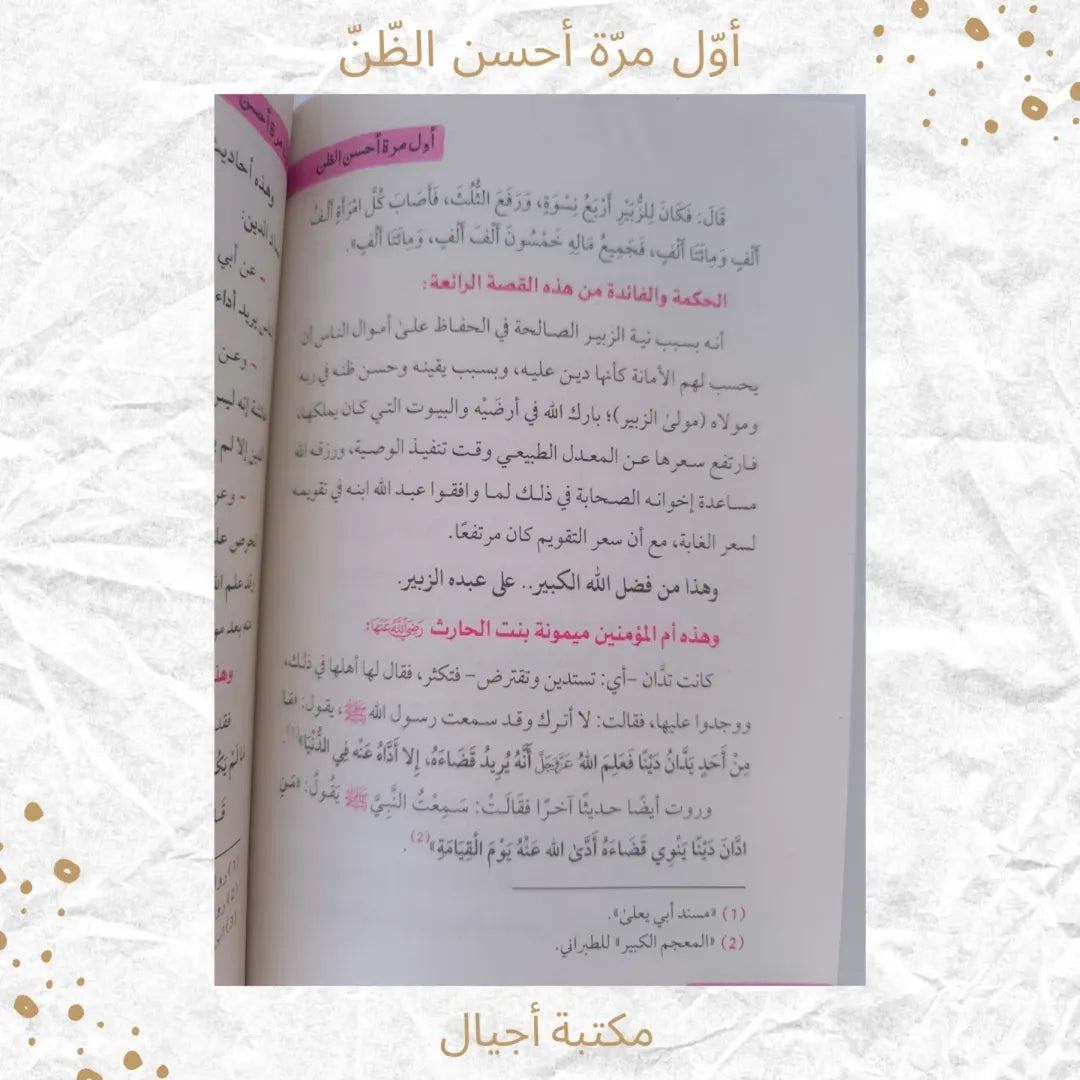 أوّل مرّة أحسن الظّنّ
أول مرة أحسن الظن
قَالَ: فَكَانَ لِلزُّبَيْرِ أَرْبَعُ نِسْوَةٍ، وَرَفَعَ الثُّلُثَ، فَأَصَابَ كُلَّ امْرَأَةٍ أَلْفُ
أَلْفٍ وَمِائَتَا أَلْفٍ، فَجَمِيعُ مَالِهِ خَمْسُونَ أَلْفَ أَلْفٍ، وَمِائَتَا أَلْفٍ».
الحكمة والفائدة من هذه القصة الرائعة:
أنه بسبب نية الزبير الصالحة في الحفاظ علىٰ أموال الناس إن
يحسب لهم الأمانة كأنها دين عليه، وبسبب يقينه وحسن ظنه في ربه
ومولاه (مولىٰ الزبير)؛ بارك الله في أرضَيْه والبيوت التي كان يملكها،
فارتفع سعرها عن المعدل الطبيعي وقت تنفيذ الوصية، ورزقه الله
مساعدة إخوانه الصحابة في ذلك لما وافقوا عبد الله ابنه في تقويمه
لسعر الغابة، مع أن سعر التقويم كان مرتفعًا.
وهذا من فضل الله الكبير.. على عبده الزبير.
وهذه أم المؤمنين ميمونة بنت الحارث رَضِيَ اللَّهُ عَنْهَا:
كانت تدَّان -أي: تستدين وتقترض- فتكثر، فقال لها أهلها في ذلك،
ووجدوا عليها، فقالت: لا أترك وقد سمعت رسول الله ﷺ، يقول: «مَا
مِنْ أَحَدٍ يَدَّانُ دَيْنًا فَعَلِمَ اللهُ عَزَّوَجَلَّ أَنَّهُ يُرِيدُ قَضَاءَهُ، إِلا أَدَّاهُ عَنْه فِي الدُّنْيَا»(1).
وروت أيضًا حديثًا آخرًا فقَالَتْ: سَمِعْتُ النَّبِيَّ ﷺ يَقُولُ: «مَنِ
ادَّانَ دَيْنًا يَنْوِي قَضَاءَهُ أَدَّىٰ الله عَنْهُ يَوْمَ الْقِيَامَةِ»(2).
(1) «مسند أبي يعلىٰ».
(2) «المعجم الكبير» للطبراني.
وهذه أحاديث
- عن أبي
- وعن
مكتبة أجيال